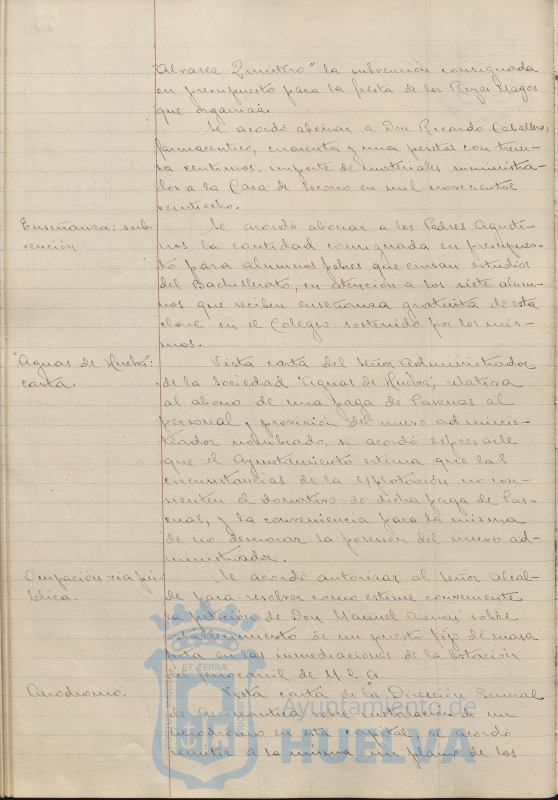 Alvarez Quintero" la subvención consignada
en presupuesto para la fiesta de los Reyes Magos
que organiza.
Se acordó abonar a Don Ricardo Caballero,
farmaceutico, cincuenta y una pesetas con trein-
ta centimos, importe de materiales suministra-
dos a la Casa de Socorro en mil novecientos
veintiocho.
Enseñanza: sub-
vención
Se acordó abonar a los Padres Agusti-
nos la cantidad consignada en presupues-
to para alumnos pobres que cursan estudios
del Bachillerato, en atención a los siete alum-
nos que reciben enseñanza gratuita de esta
clase en el Colegio sostenido por los mis-
mos.
"Aguas de Huelva":
carta.
Vista carta del Señor Administrador
de la Sociedad "Aguas de Huelva", relativa
al abono de una paga de Pascuas al
personal y provisión del nuevo adminis-
trador nombrado, se acordó expresarle
que el Ayuntamiento estima que las
circunstancias de la explotación no con-
sienten el donativo de dicha paga de Pas-
cuas, y la conveniencia para la misma
de no demorar la posesión del nuevo ad-
ministrador.
Ocupación via pú-
blica.
Se acordó autorizar al Señor Alcal-
de para resolver como estime conveniente
la petición de Don Manuel sobre
establecimiento de un puesto fijo de masa
frita en las inmediaciones de la Estación
del ferrocarril de M. Z. A.
Aerodromo.
Vista carta de la Dirección General
de Aeronáutica sobre instalación de un
aerodromo en esta capital, se acordó
remitir a la misma un plano de los
Ayuntamiento de
HUELVA